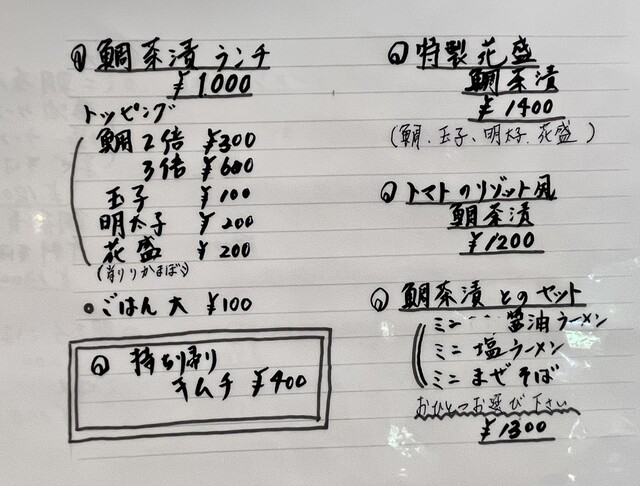 鯛茶漬ランチ
¥1000
トッピング
鯛2倍 ¥300
3倍 ¥600
玉子 ¥100
明太子 ¥200
花盛 ¥200
(削りかまぼこ)
ごはん大 ¥100
持ち帰り
キムチ ¥400
特製花盛
鯛茶漬
¥1400
(鯛、玉子、明太子、花盛)
トマトのリゾット風
鯛茶漬
¥1200
鯛茶漬とのセット
ミニ 醤油ラーメン
ミニ 塩ラーメン
ミニ まぜそば
おひとつお選び下さい
¥1300